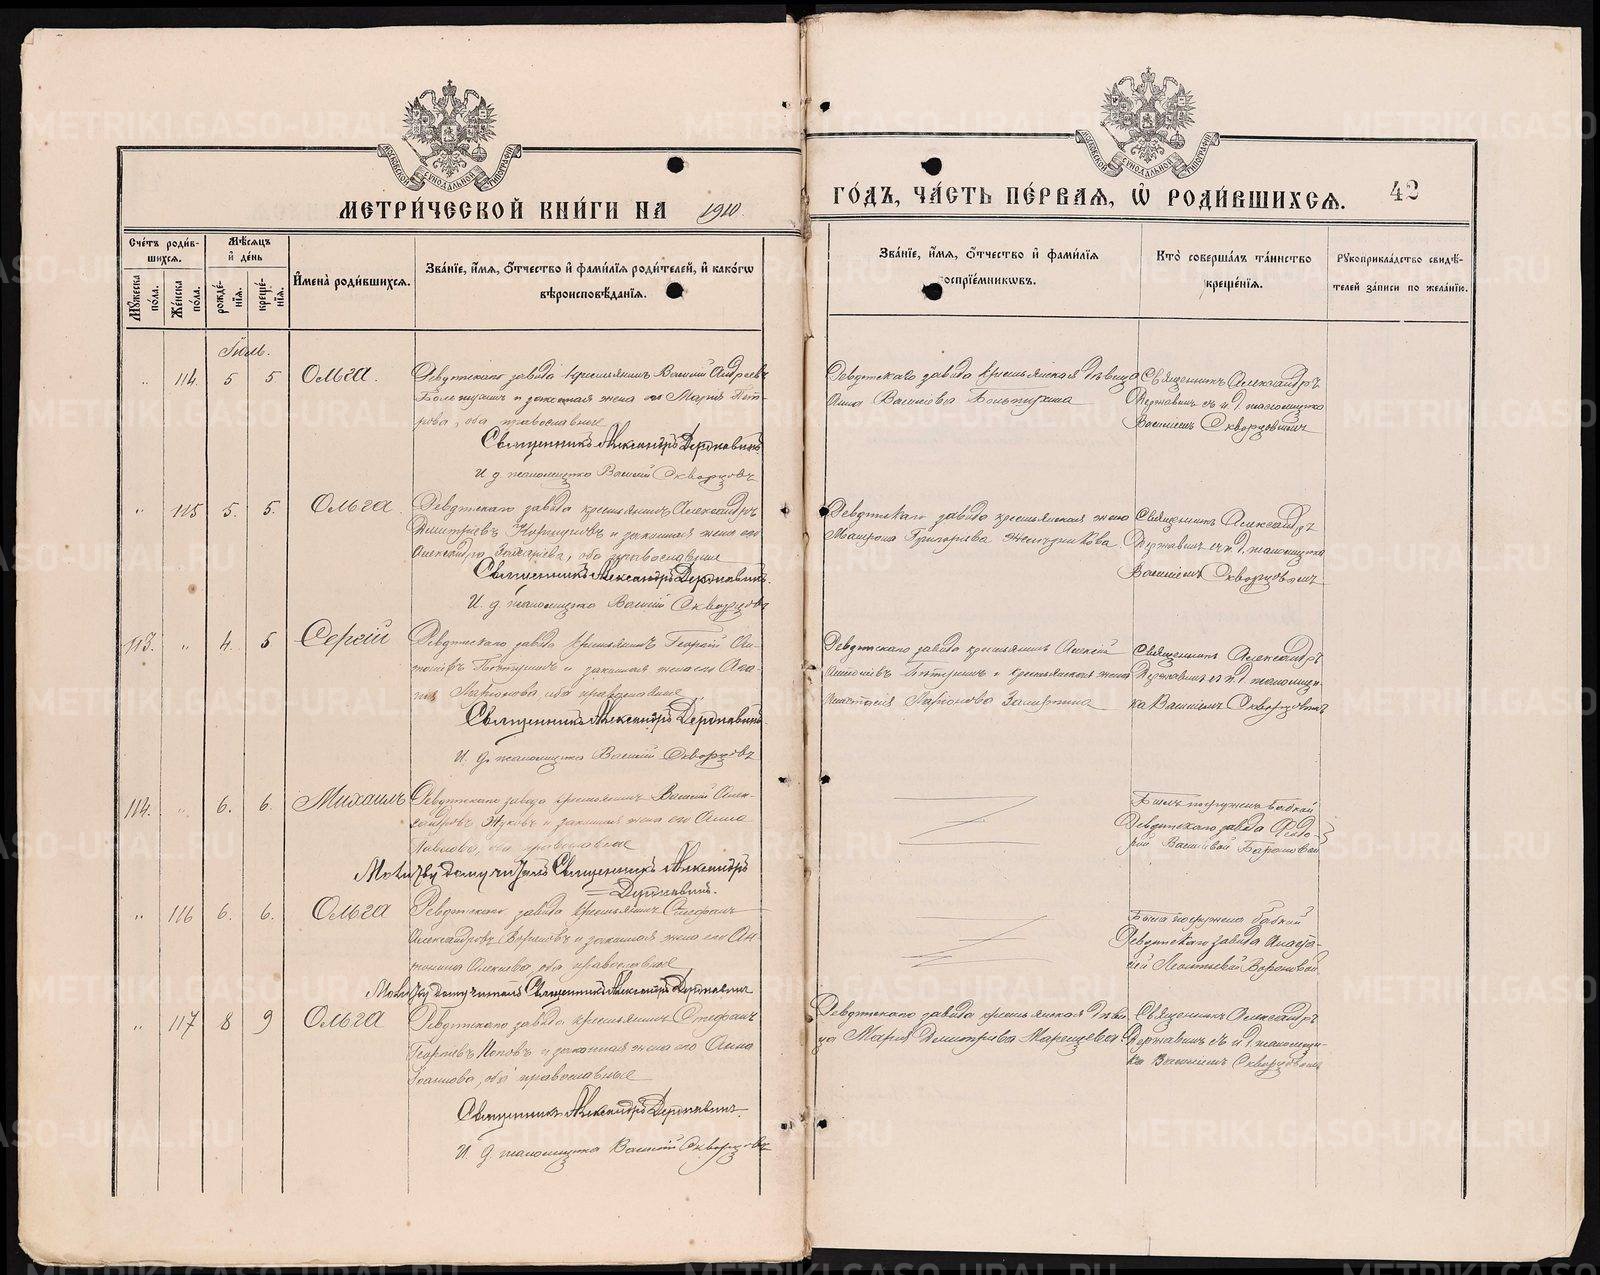 МЕТРИ́ЧЕСКОЙ КНИ́ГИ НА 1910
ГО́ДЪ, ЧА́СТЬ ПЕ́РВАЯ, Ѡ҆ РОДИ́ВШИХСѦ.
42
МОСКОВСКОЙ СѴНОДАЛЬНОЙ ТИПОГРАФІИ
Сче́тъ роди́в-
шихсѧ.
Мѣ́сѧцъ
и҆ де́нь
Мꙋ́жеска по́ла.
Же́нска по́ла.
рожде́-
нїѧ.
креще́-
нїѧ.
И҆мена̀ роди́вшихсѧ.
Зва́нїе, и҆́мѧ, ѻ҆́тчество и҆ фами́лїѧ роди́телей, и҆ како́гѡ
вѣроисповѣ́данїѧ.
Зва́нїе, и҆́мѧ, ѻ҆́тчество и҆ фами́лїѧ
воспрїе́мникѡвъ.
Кто̀ соверша́лъ та́инство
креще́нїѧ.
Рꙋкоприкла́дство свидѣ́-
телей за́писи по жела́нїю.
Іюль.
„ 114. 5 5 Ольга.
Ревдинскаго завода крестьянинъ Василій Андреевъ
и законная жена его Марія Пет-
рова, оба православные
Священникъ Александръ Державинъ
И. д. псаломщика Василій Скворцовъ
Ревдинскаго завода крестьянская дѣвица
Анна Васильева
Священникъ Александръ
Державинъ съ и. д. псаломщика
Василіемъ Скворцовымъ
„ 115 5. 5. Ольга.
Ревдинскаго завода крестьянинъ Александръ
Дмитріевъ и законная жена его
Александра оба православные
Священникъ Александръ Державинъ.
И. д. псаломщика Василій Скворцовъ
Ревдинскаго завода крестьянская жена
Матрона Григорьева
Священникъ Александръ
Державинъ съ и. д. псаломщика
Василіемъ Скворцовымъ
113. „ 4. 5 Сергій
Ревдинскаго завода крестьянинъ Георгій Ан-
и законная жена его Ага-
Ларіонова оба православные
Священникъ Александръ Державинъ
И. д. псаломщика Василій Скворцовъ
Ревдинскаго завода крестьянинъ Алексій
и крестьянская жена
Ларіонова
Священникъ Александръ
Державинъ съ и. д. псаломщи-
ка Василіемъ Скворцовымъ
114. „ 6. 6. Михаилъ
Ревдинскаго завода крестьянинъ Василій Алек-
сандровъ Жуковъ и законная жена его Анна
Павлова, оба православные
Молитву дому читалъ Священникъ Александръ
Державинъ.
Былъ погруженъ бабкой
Ревдинскаго завода Ѳедо-
рой Васильевой
„ 116 6. 6. Ольга
Ревдинскаго завода крестьянинъ Стефанъ
Александровъ и законная жена его Ан-
тонина Алексѣева, оба православные
Молитву дому читалъ Священникъ Александръ Державинъ
Была погружена бабкой
Ревдинскаго завода
Леонтьевой
„ 117 8 9 Ольга
Ревдинскаго завода крестьянинъ Стефанъ
Георгіевъ Поповъ и законная жена его Анна
оба православные
Священникъ Александръ Державинъ.
И. д. псаломщика Василій Скворцовъ
Ревдинскаго завода крестьянская дѣви-
ца Марія Димитріева
Священникъ Александръ
Державинъ съ и. д. псаломщи-
ка Василіемъ Скворцовымъ
METRIKI.GASO-URAL.RU